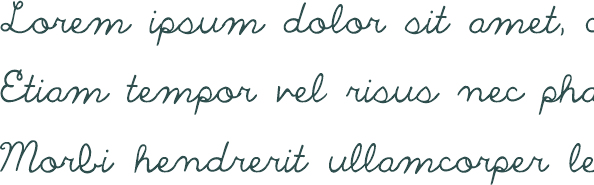 Lorem ipsum dolor sit amet,
Etiam tempor vel risus nec pha
Morbi hendrerit ullamcorper le